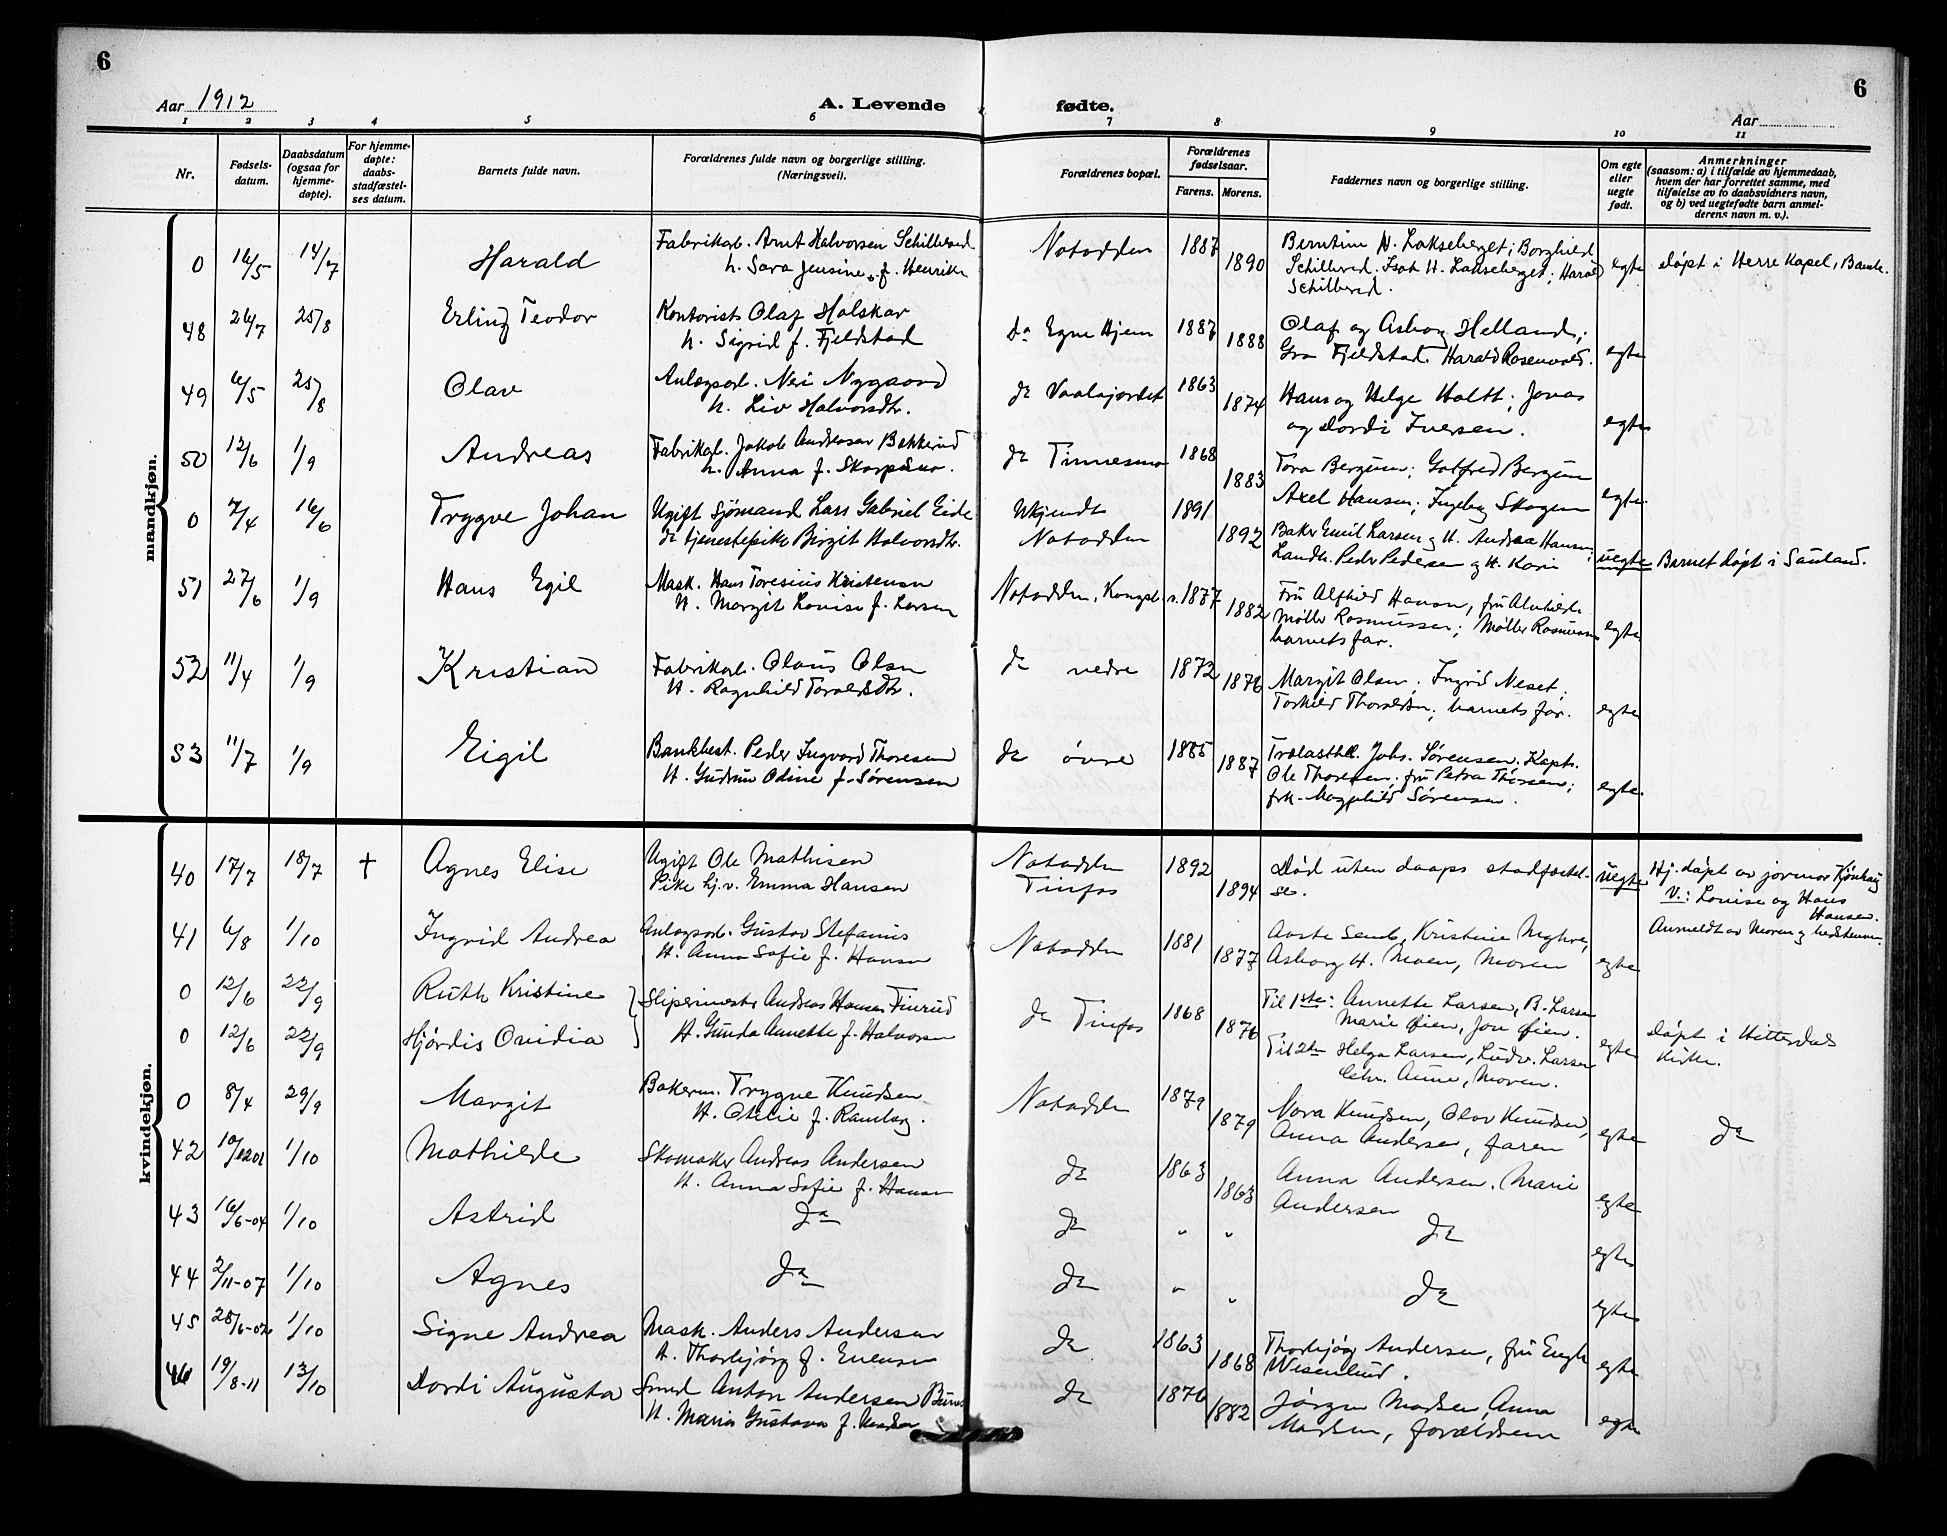 6
6
Aar 1912
A. Levende fødte.
Aar
1 2 3 4 5 6 7 8 9 10 11
Nr.
Fødsels-
datum.
Daabsdatum
(ogsaa for
hjemme-
døpte).
For hjemme-
døpte:
daabs-
stadfæstel-
ses datum.
Barnets fulde navn.
Forældrenes fulde navn og borgerlige stilling.
(Næringsvei).
Forældrenes bopæl.
Forældrenes
fødselsaar.
Farens. Morens.
Faddernes navn og borgerlige stilling.
Om egte
eller
uegte
født.
Anmerkninger
(saasom: a) i tilfælde av hjemmedaab,
hvem der har forrettet samme, med
tilføielse av to daabsvidners navn,
og b) ved uegtefødte barn anmel-
derens navn m. v.).
mandkjøn.
0 16/5 14/7 Harald
Fabrikarb. Arnt Halvorsen
h. Sara Jensine f. Henrikse
Notodden 1887 1890
Berntine H. Lakseberget; Borghild
Schillered. Isak H. Lakseberget; Harald
Schillered.
egte
døpt i Herre Kapel, Bamle.
48 26/7 25/8 Erling Teodor
Kontorist Olaf Holskar
h. Sigrid f. Fjeldstad
do Egne Hjem 1887 1888
Olaf og Asborg Helland;
Gro Fjeldstad. Harald Rosenvold.
egte
49 6/5 25/8 Olav
Anlægsarb. Nygaard
h. Liv Halvorsdtr.
do 1863 1874
Hans og Helge Holtt; Jonas
og Dordi Iversen.
egte
50 12/6 1/9 Andreas
Fabrikarb. Jakob Andreasen Bakkerud
h. Anna f. Skarpsno.
do Tinnesmo 1868 1883
Tora Bergum; Gotfred Bergum
Axel Hansen; Ingeborg Skogen
egte.
0 7/4 16/6 Trygve Johan
Ugift Sjømand Lars Gabriel Eide
do tjenestepike Bergit Halvorsdtr.
Ukjendt
Notodden
1891 1892
Baker Emil Larsen og H. Andrea Hansen;
Landh. Peder Pedersen og H. Karen
uegte
Barnet døpt i Sauland.
51 27/6 1/9 Hans Egil
Mask. Hans Toresius Kristensen
H. Margit Lovise f. Larsen
Notodden, Kongsb. 1877 1882
Fru Alfhild Hanson, fru
Møller Rasmussen; Møller Rasmussen
barnets far.
egte
52 11/4 1/9 Kristian
Fabrikarb. Olaus Olsen
H. Ragnhild Toraldsdtr.
do nedre 1872 1876
Margit Olsen, Ingrid Neset;
Torkild Thoraldsen; barnets far.
egte
53 11/7 1/9 Eigil
Bankbest. Peder Ingvard Thoresen
H. Gudrun Odine f. Sørensen
do øvre 1885 1887
Trælasthdl. Johs. Sørensen. Kapt.
Ole Thoresen; fru Petra Thoresen;
frk. Sørensen.
egte.
kvindekjøn.
40 17/7 18/7 † Agnes Elise
Ugift Ole Mathisen
Pike hj.v. Emma Hansen
Notodden
Tinfos
1892 1894
Død uten daaps stadfæstel-
se.
uegte
Hj. døpt av jormor
V.: Louise og Hans
Hansen.
Anmeldt av Moren og
41 6/8 1/10 Ingrid Andrea
Anlægsarb. Gustav Stefanus
H. Anna Sofie f. Hansen
Notodden 1881 1877
Aaste Sem, Kristine
Asborg H. Moen, Moren
egte
0 12/6 22/9 Ruth Kristine
0 12/6 22/9 Hjørdis Ovidia
Slipermester Andreas Hansen Finrud
H. Gunda Annette f. Halvorsen
do Tinfos 1868 1876
Til 1ste: Annette Larsen, B. Larsen
Marie Øien, Jon Øien.
Til 2den Helga Larsen, Ludv. Larsen
Anne, Moren.
egte
døpt i Hitterdals
kirke.
0 8/4 29/9 Margit
Bakerm. Trygve Knudsen
H. Otilie f. Ramberg.
Notodden 1879 1879
Nora Knudsen, Olav Knudsen,
Anna Andersen, faren
egte do
42 10/12 01 1/10 Mathilde
Skomaker Andreas Andersen
H. Anna Sofie f. Hansen
do 1863 1863
Anna Andersen. Marie
Andersen
egte
43 16/6-04 1/10 Astrid do do " " do egte
44 2/11-07 1/10 Agnes do do " " do egte
45 25/6-02 1/10 Signe Andrea
Mask. Anders Andersen
H. Thorbjørg f. Evensen
do 1863 1868
Thorbjørg Andersen, fru Engh
egte
46 19/8-11 13/10 Dordi Augusta
Smed Anton Andersen
H. Maria Gustava f.
do 1876 1882
Jørgen Madsen, Anna
Madsen, forældrene
egte